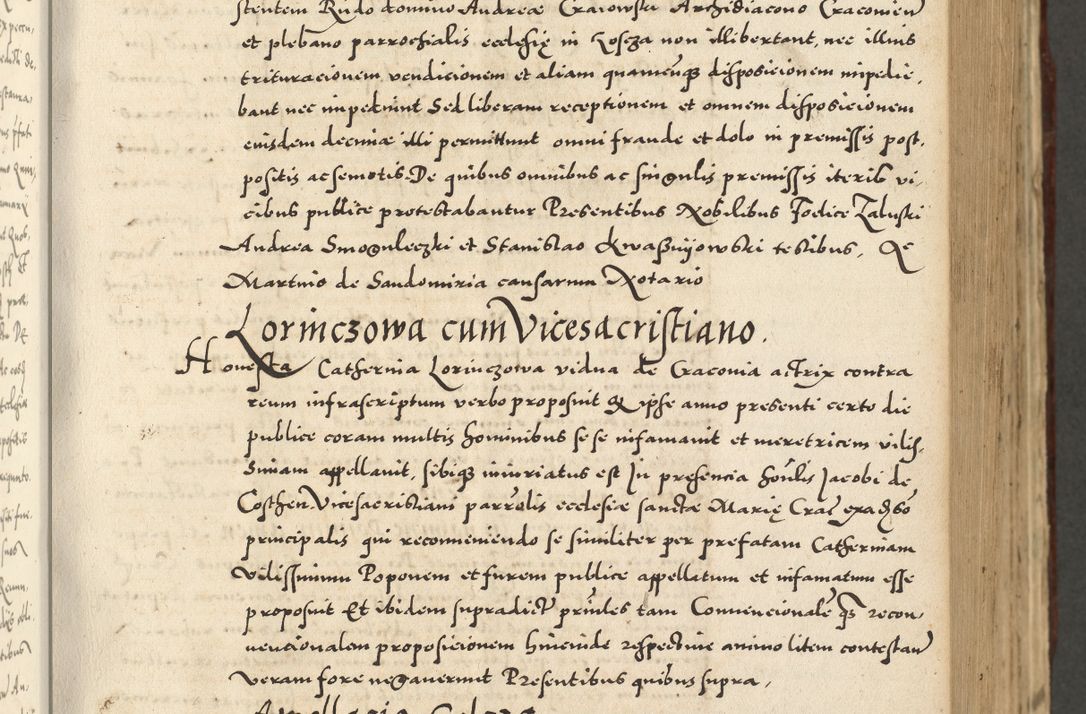 stentem Rndo domino Andreae Craiowski Archidiacono Cracovien
et plebano parrochialis ecclesię in Koscza non illibertant, nec illius
trituracionem vendicionem et aliam quamcunqz disposicionem impedie,
bant nec impediunt Sed liberam receptionem et omnem disposicionem
eiusdem decimae illi permittunt omni fraude et dolo in premissis post,
positis ac semotis. De quibus omnibus ac singulis premissis iterib vi,
cibus publice protestabantur Presentibus Nobilibus Foelice Zaluski
Andrea Smoguleczki et Stanislao Kwaßnijowski testibus, Qe
Martino de Sandomiria causarum Notario
Lorinczowa cum Vicesacristiano.
Honesta Catherina Lorinczowa vidua de Cracovia actrix contra
reum infrascriptum verbo proposuit Q ipse anno presenti certo die
publice coram multis hominibus se se infamavit et meretricem vilis,
simam appellavit, sibiqz iniuriatus est In presencia honlis Jacobi de
Costhen Vicesacristiani parrolis ecclesiae sanctae Marię Crac ex adverso
principalis qui reconveniendo se similiter per prefatam Catherinam
vilissimum Poponem et furem publice appellatum et infamatum esse
proposuit Et ibidem supradict princles tam Convencionale qz recon,
vencionalem proposicionem hincinde respective animo litem contestan
veram fore negaverunt Presentibus quibus supra,